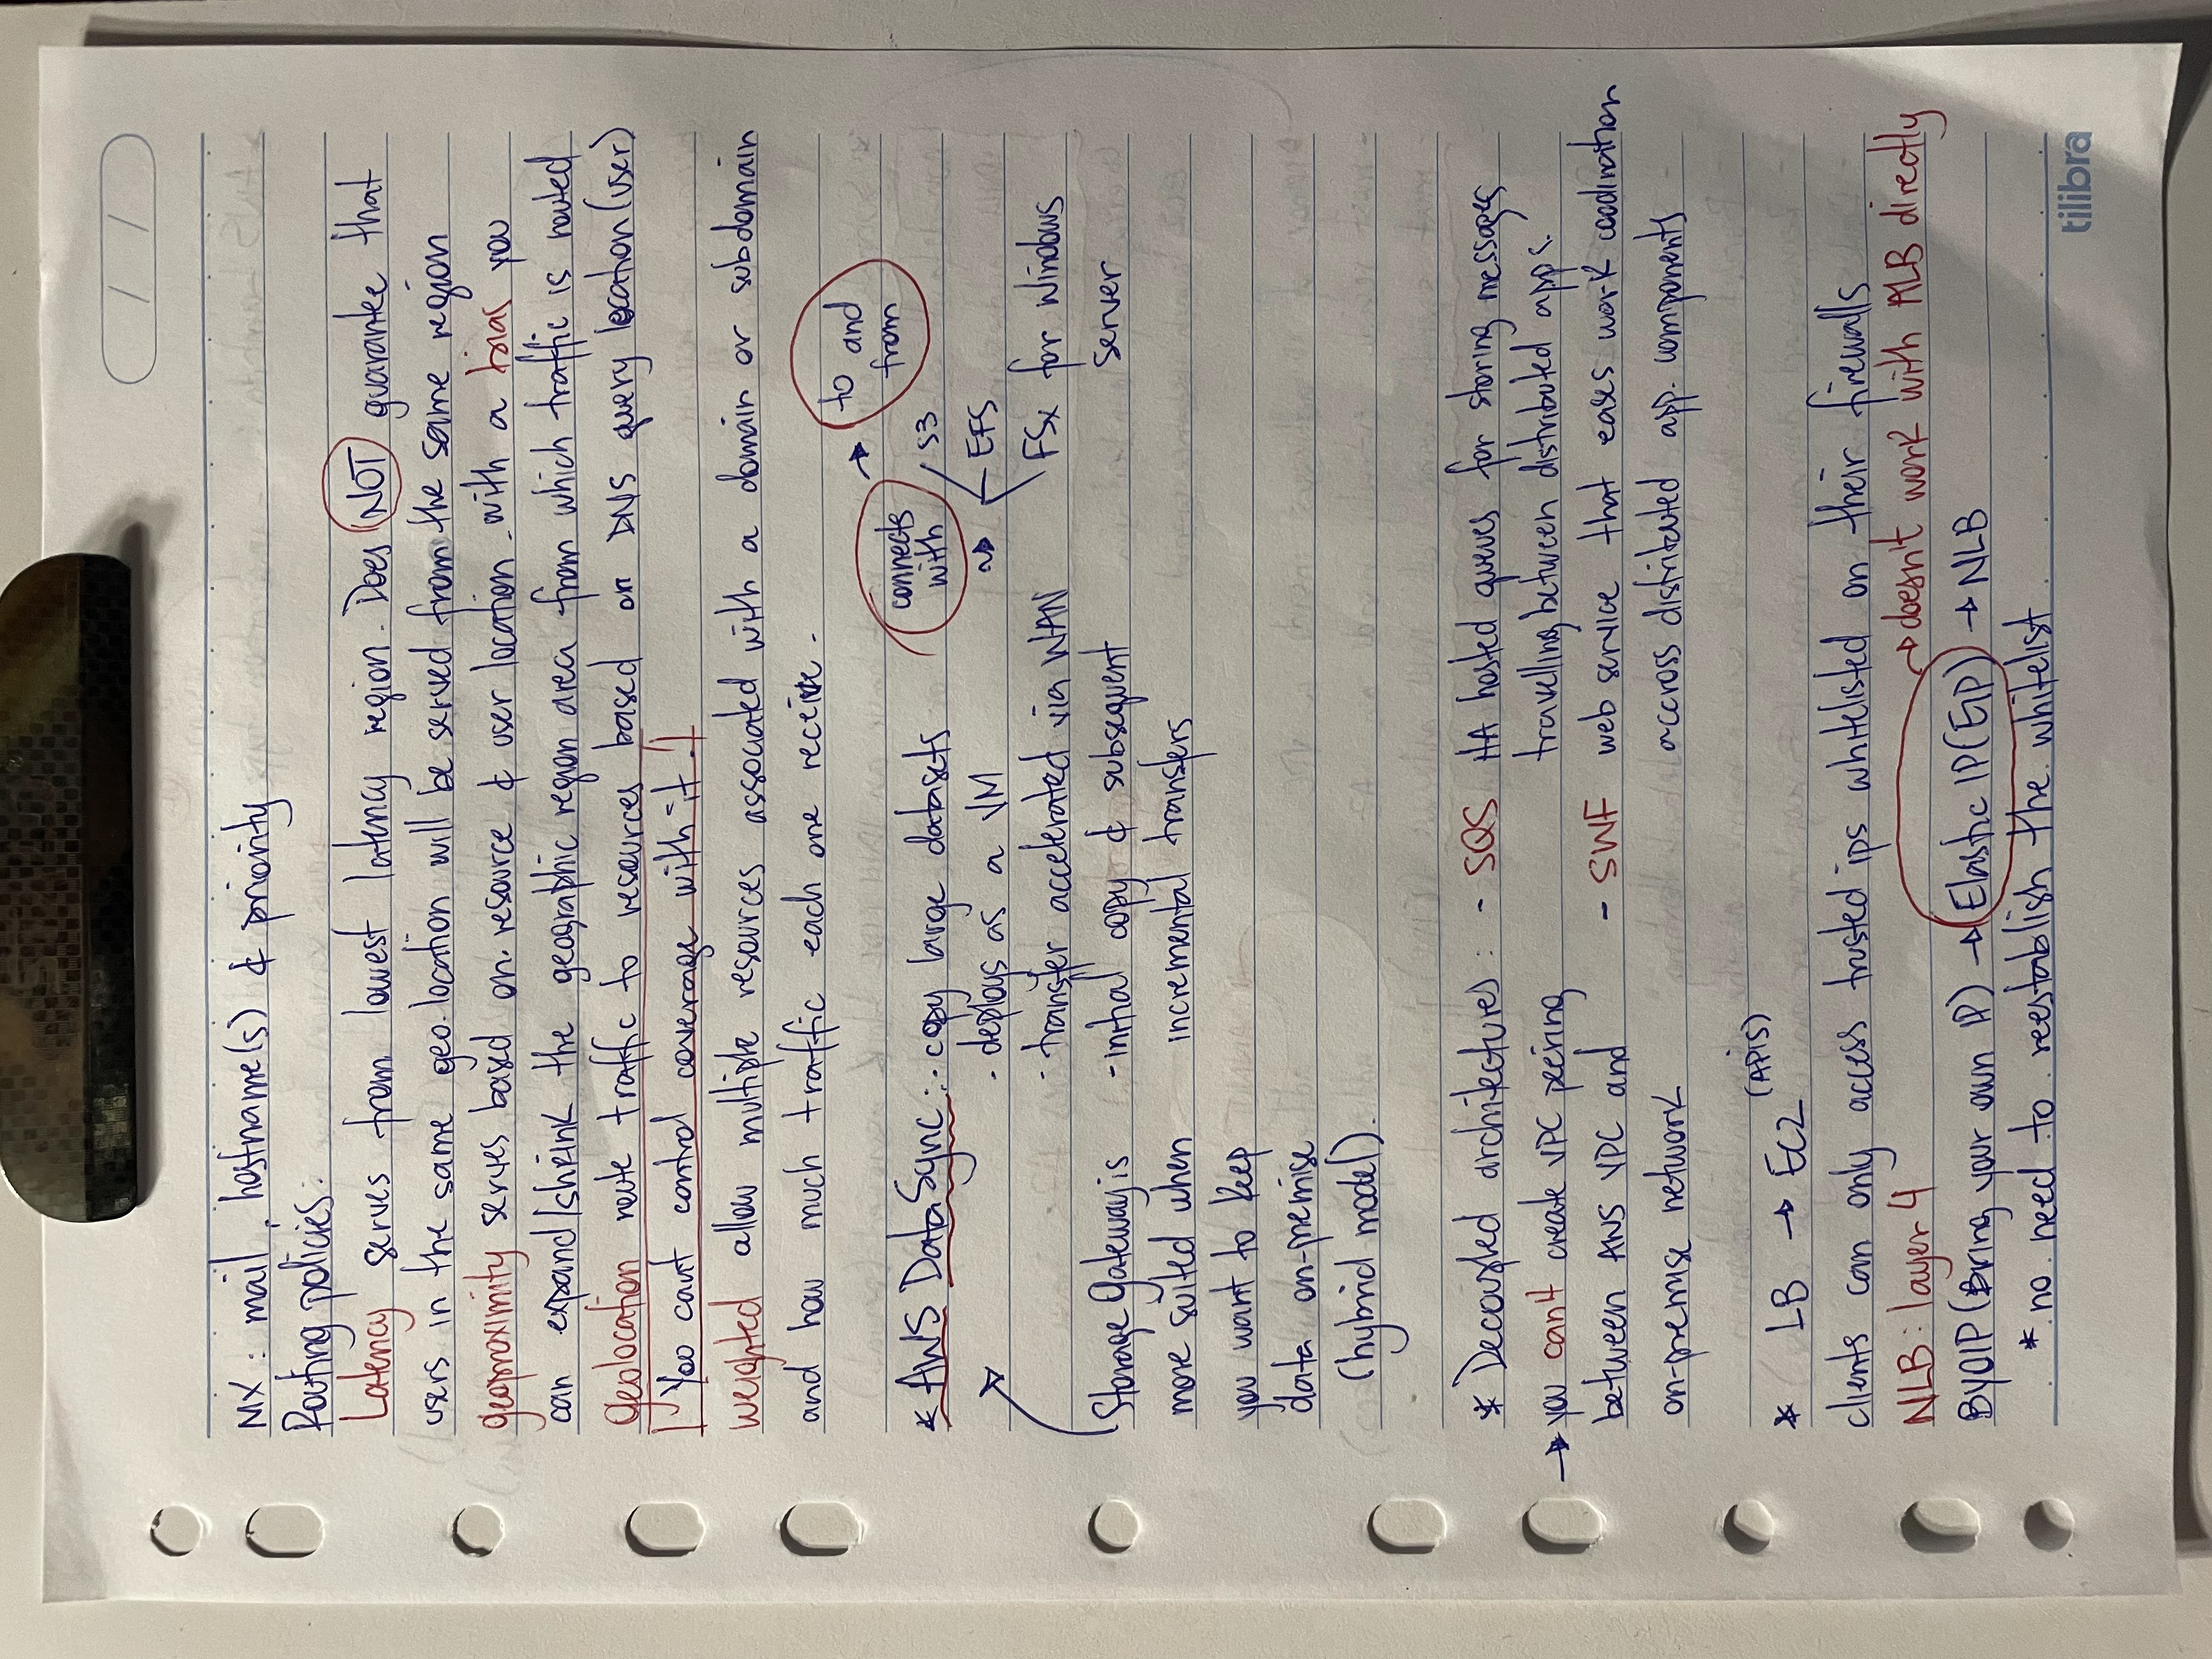 MX : mail, hostname(s) & priority
Routing policies:
Latency serves from lowest latency region. Does NOT guarantee that
users in the same geo.location will be served from the same region
geoproximity serves based on resource & user location - with a bias you
can expand/shrink the geographic region area from which traffic is routed
geolocation route traffic to resources based on DNS query location (user)
! You can't control coverage with it !
weighted allow multiple resources associated with a domain or subdomain
and how much traffic each one receive.
* AWS DataSync: - copy large datasets
- deploys as a VM
- transfer accelerated via WAN
- initial copy & subsequent
incremental transfers
connects
with
→ to and
from
S3
EFS
FSx for Windows
Server
Storage Gateway is
more suited when
you want to keep
data on-premise
(hybrid model).
* Decoupled architectures: - SQS HA hosted queues for storing messages
travelling between distributed apps.
- SWF web service that eases work coodination
accross distributed app. components
→ you can't create VPC peering
between AWS VPC and
on-premise network
* LB → EC2 (APIS)
clients can only access trusted ips whitelisted on their firewalls
NLB: layer 4
→ doesn't work with ALB directly
BYOIP (Bring your own IP) → Elastic IP (EIP) → NLB
* no need to reestablish the whitelist
tilibra